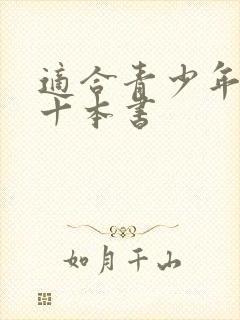 適合青少年
十本書
如月千山